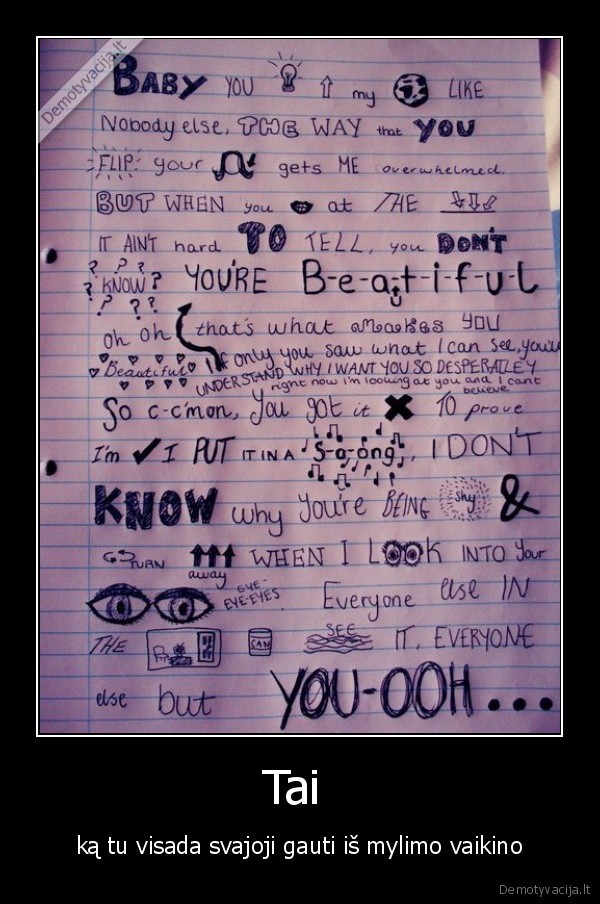 Demotyvacija.lt
BABY YOU my LIKE
Nobody else, THE WAY that YOU
FLIP your gets ME overwhelmed.
BUT WHEN you at THE
IT AIN'T hard TO TELL, you DON'T
? ? ?
? KNOW? YOU'RE B-e-a-t-i-f-u-L
? ? ?
oh oh that's what makes YOU
Beautiful If only you saw what I can see, you'll
UNDERSTAND WHY I WANT YOU SO DESPERATLEY
right now i'm looking at you and I cant
believe
So c-c'mon, You got it TO prove
I'm I PUT IT IN A S-o-ong, I DON'T
KNOW why You're BEING shy &
TURN away WHEN I LOOK INTO Your
EYE-EYE-EYES. Everyone else IN
THE CAN SEE IT, EVERYONE
else but YOU-OOH...
Tai
ką tu visada svajoji gauti iš mylimo vaikino
Demotyvacija.lt